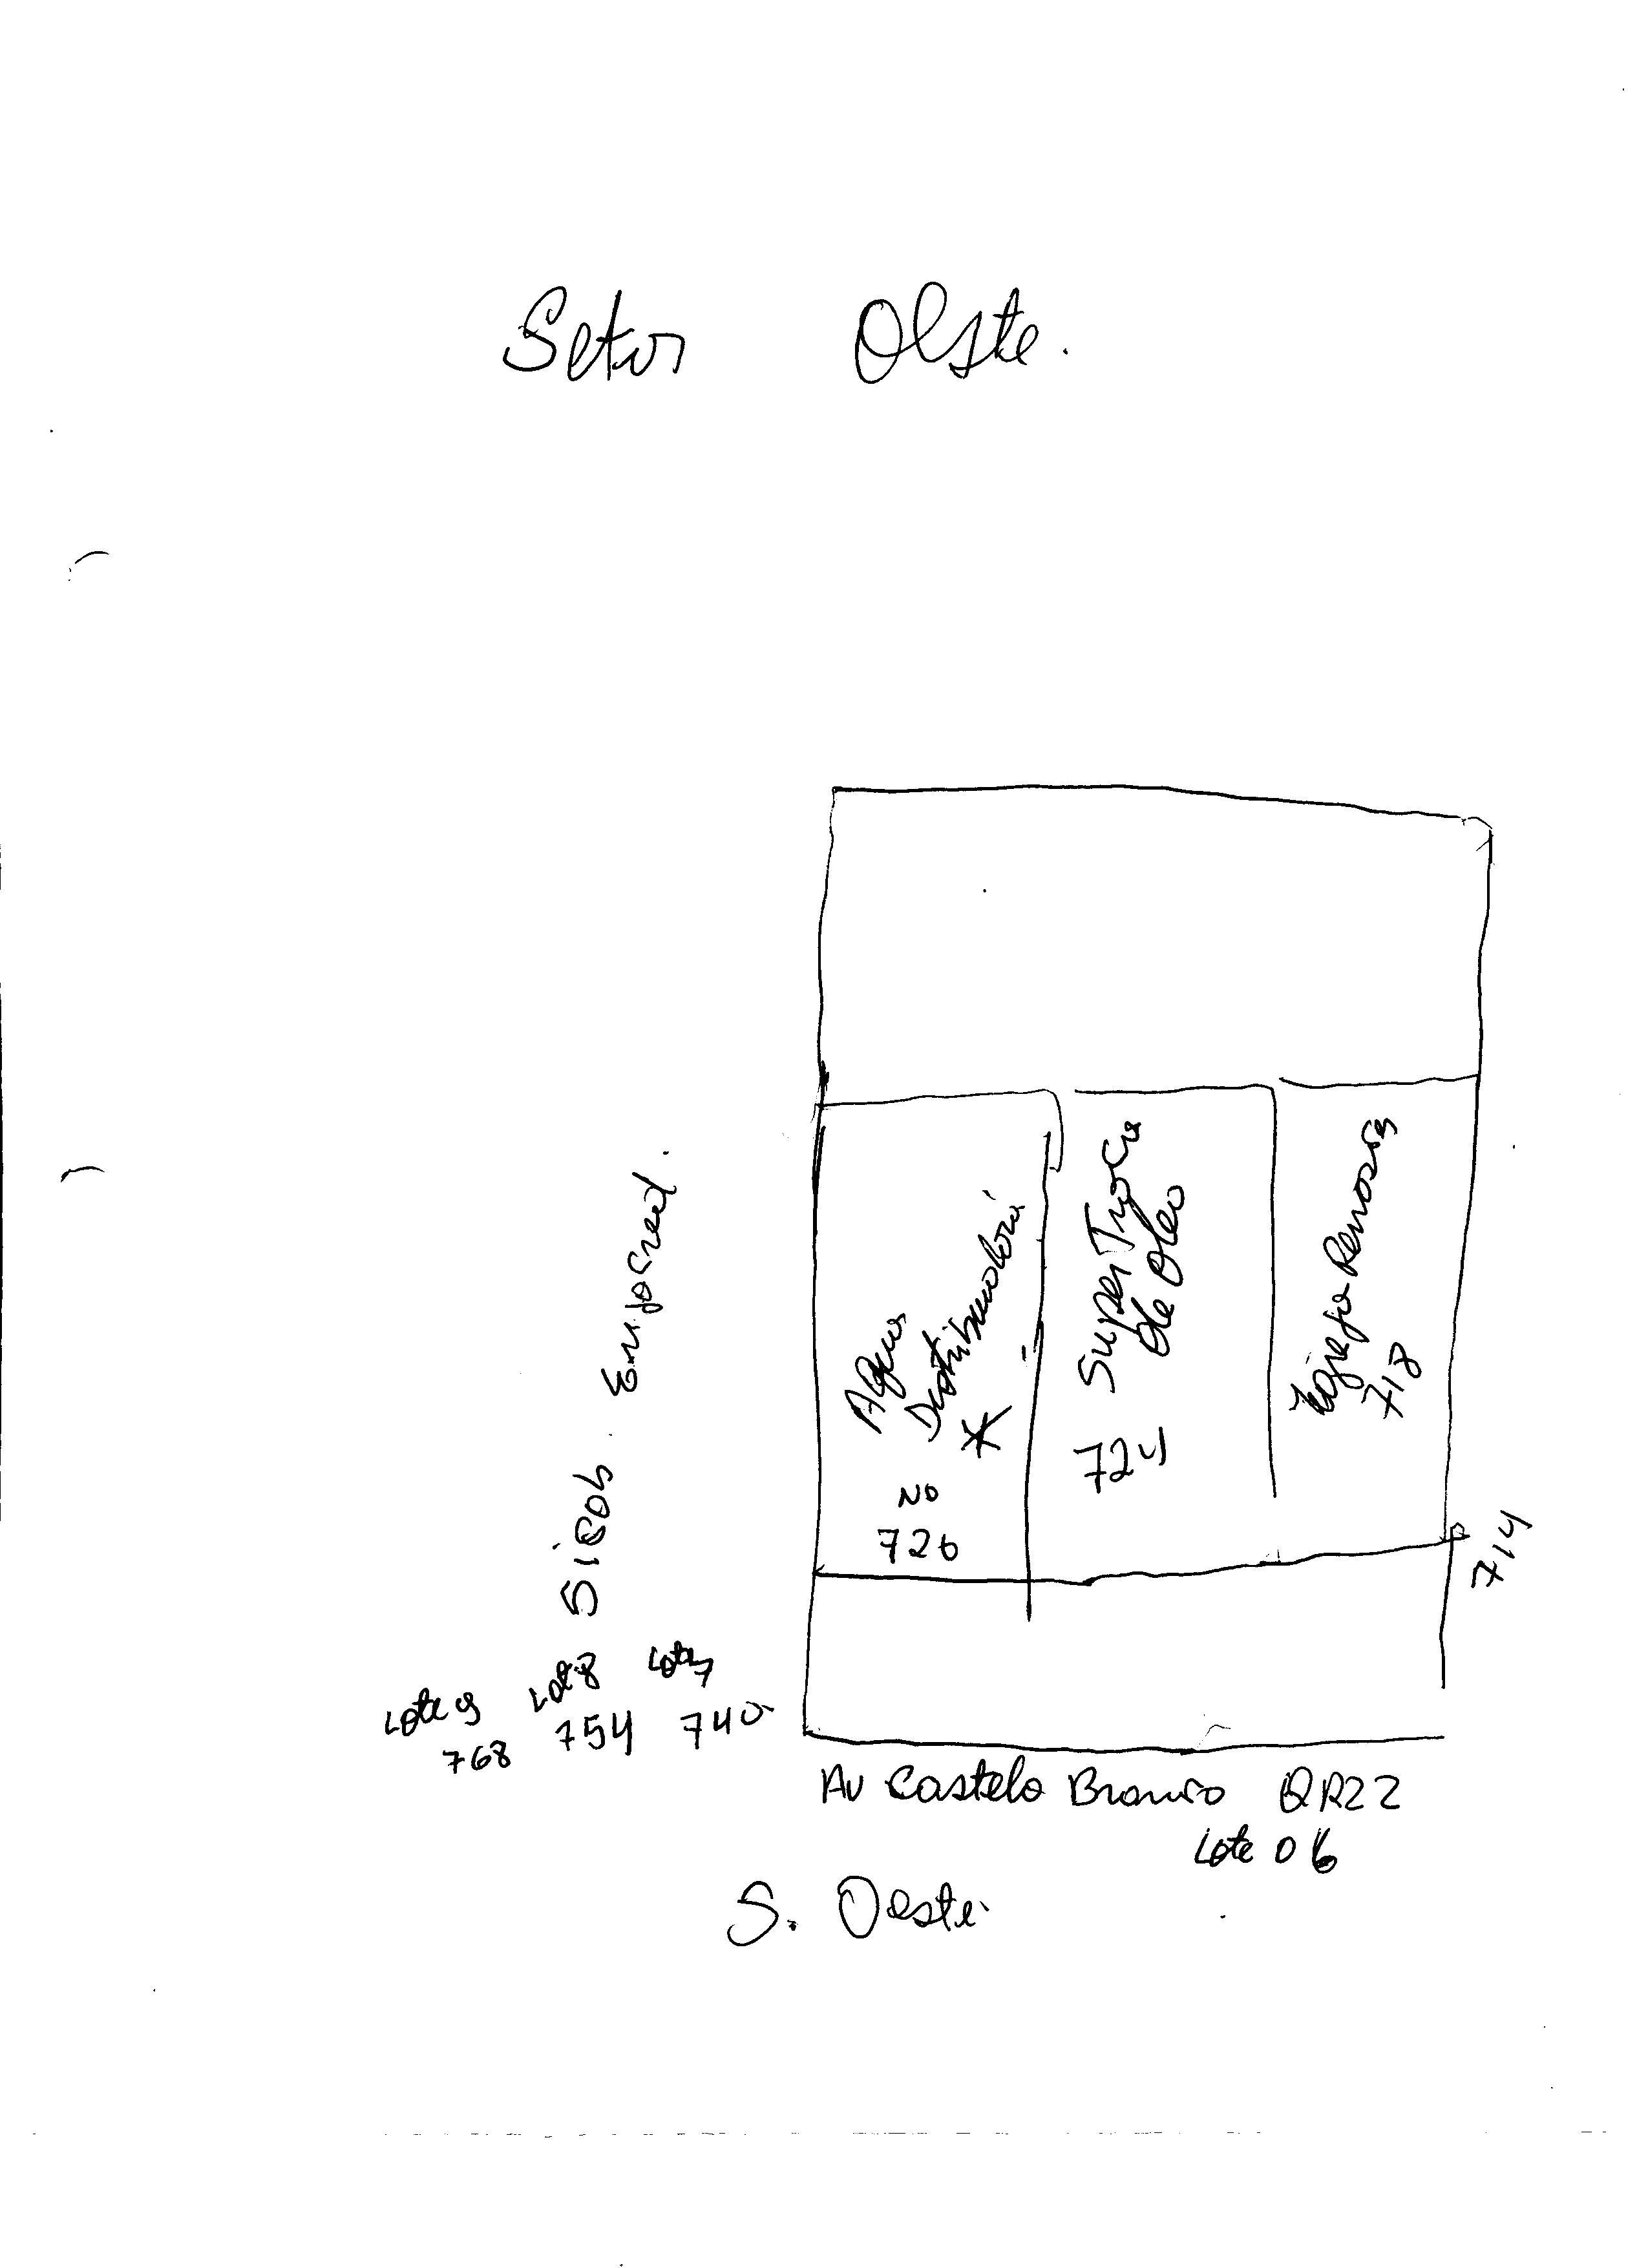 Setor Oeste.
Super Troca
de Oleo
724
Igreja Renascer
718
Distribuidora
*
No
726
714
Sicob.
Lote 9
768
Lote 8
754
Lote 7
740
Av Castelo Branco QR22
Lote 06
S. Oeste